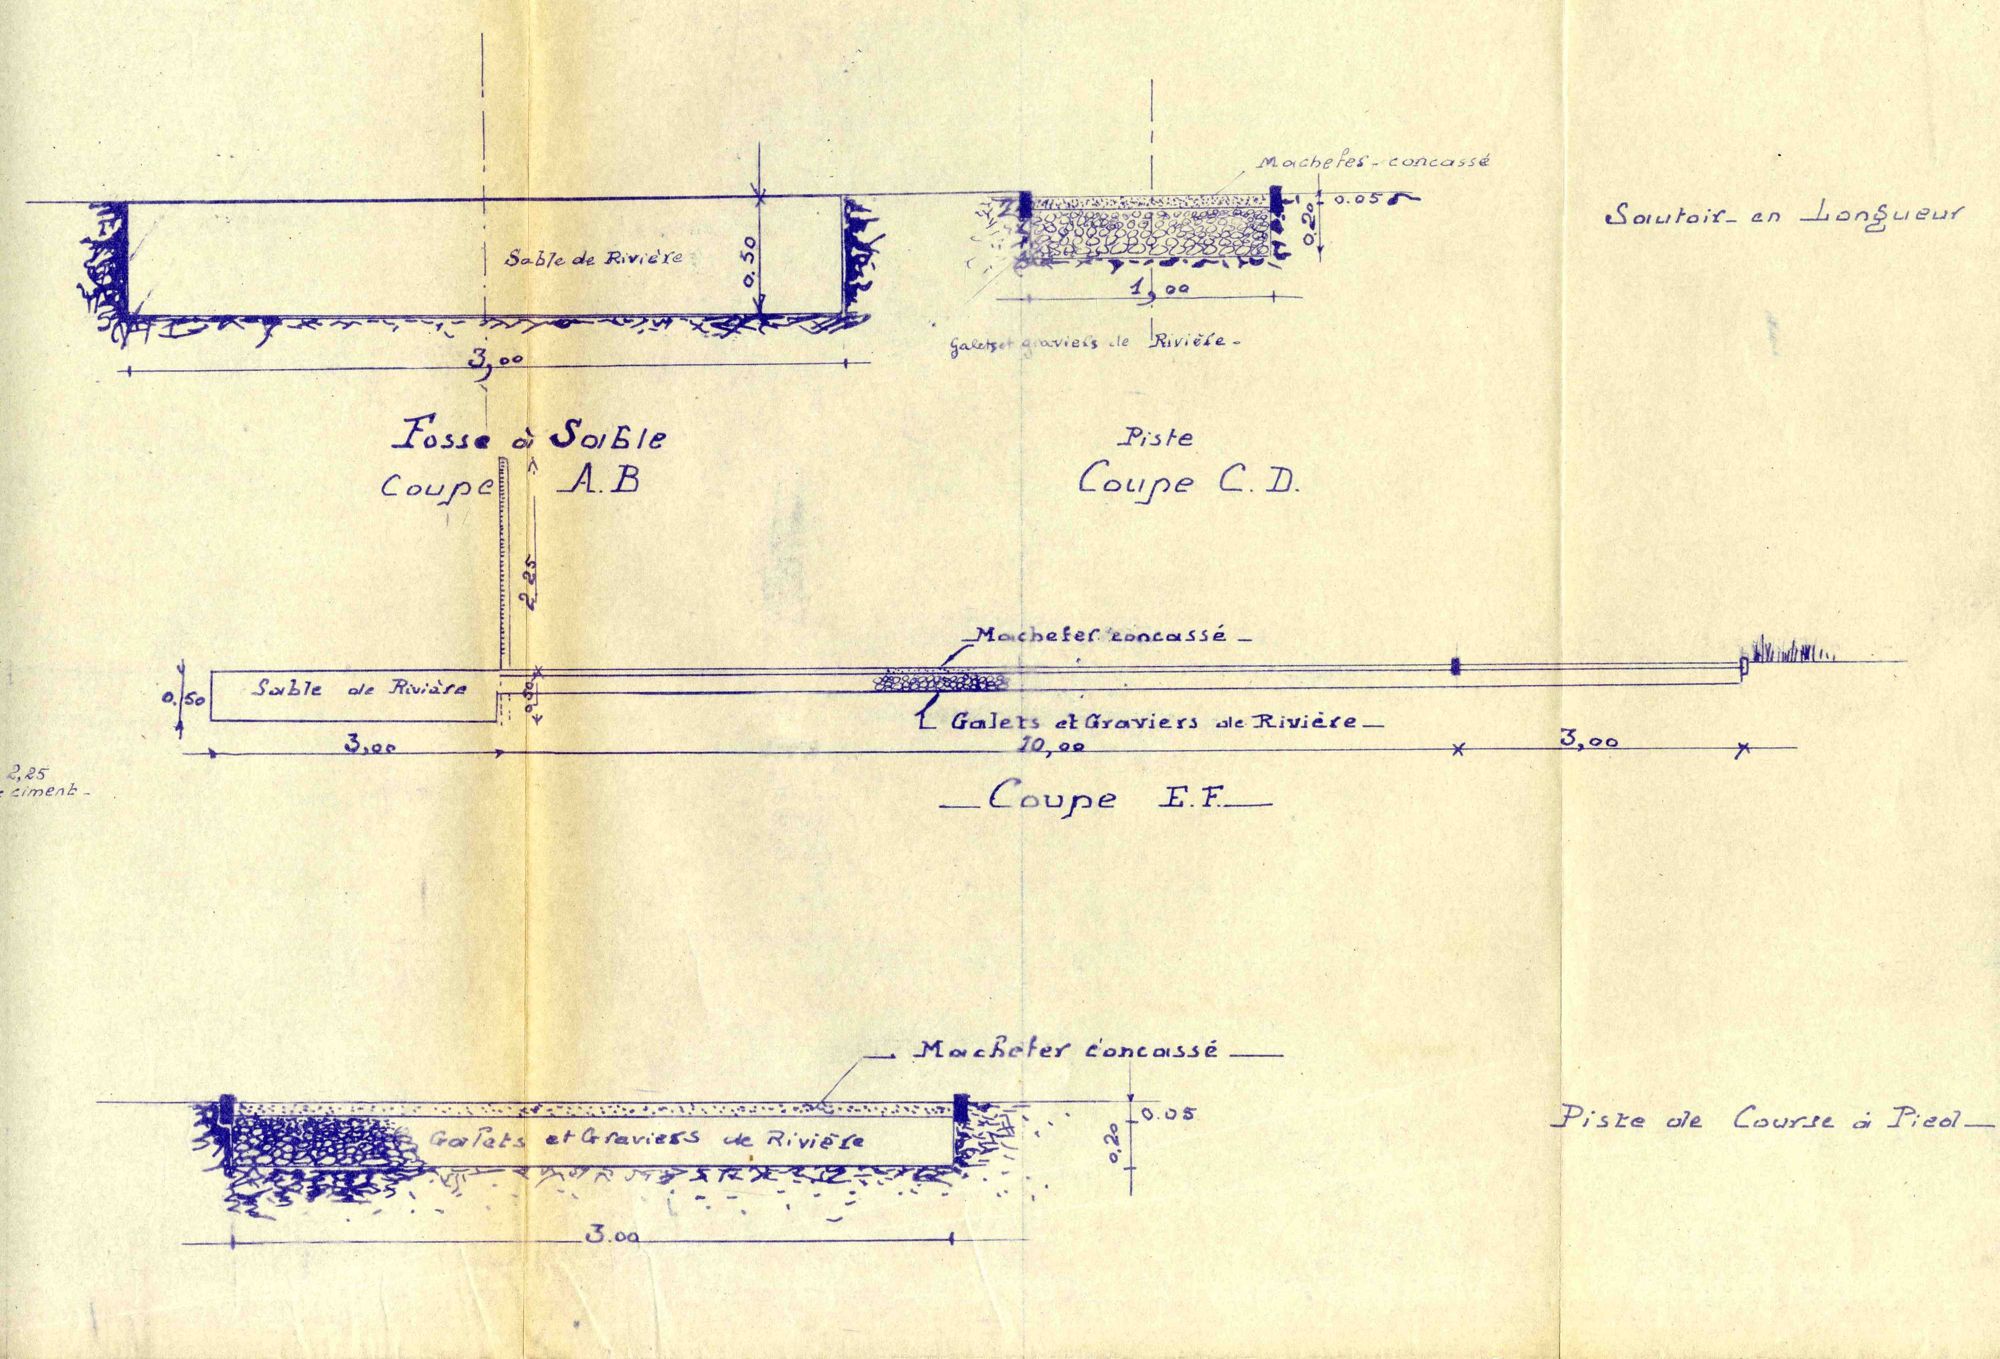 Machefer - concassé
0.05
0.20
Sautoir - en Longueur
Sable de Rivière
0.50
1,00
Galets et graviers de Rivière -
3,00
Fosse à Sable
Coupe A.B
Piste
Coupe C.D.
2,25
Machefer concassé -
0.50
Sable de Rivière
0.50
Galets et Graviers de Rivière -
3,00
10,00
3,00
2,25
ciment -
Coupe E.F.
Machefer concassé
0.05
0.20
Galets et Graviers de Rivière
Piste de Course à Pied -
3.00